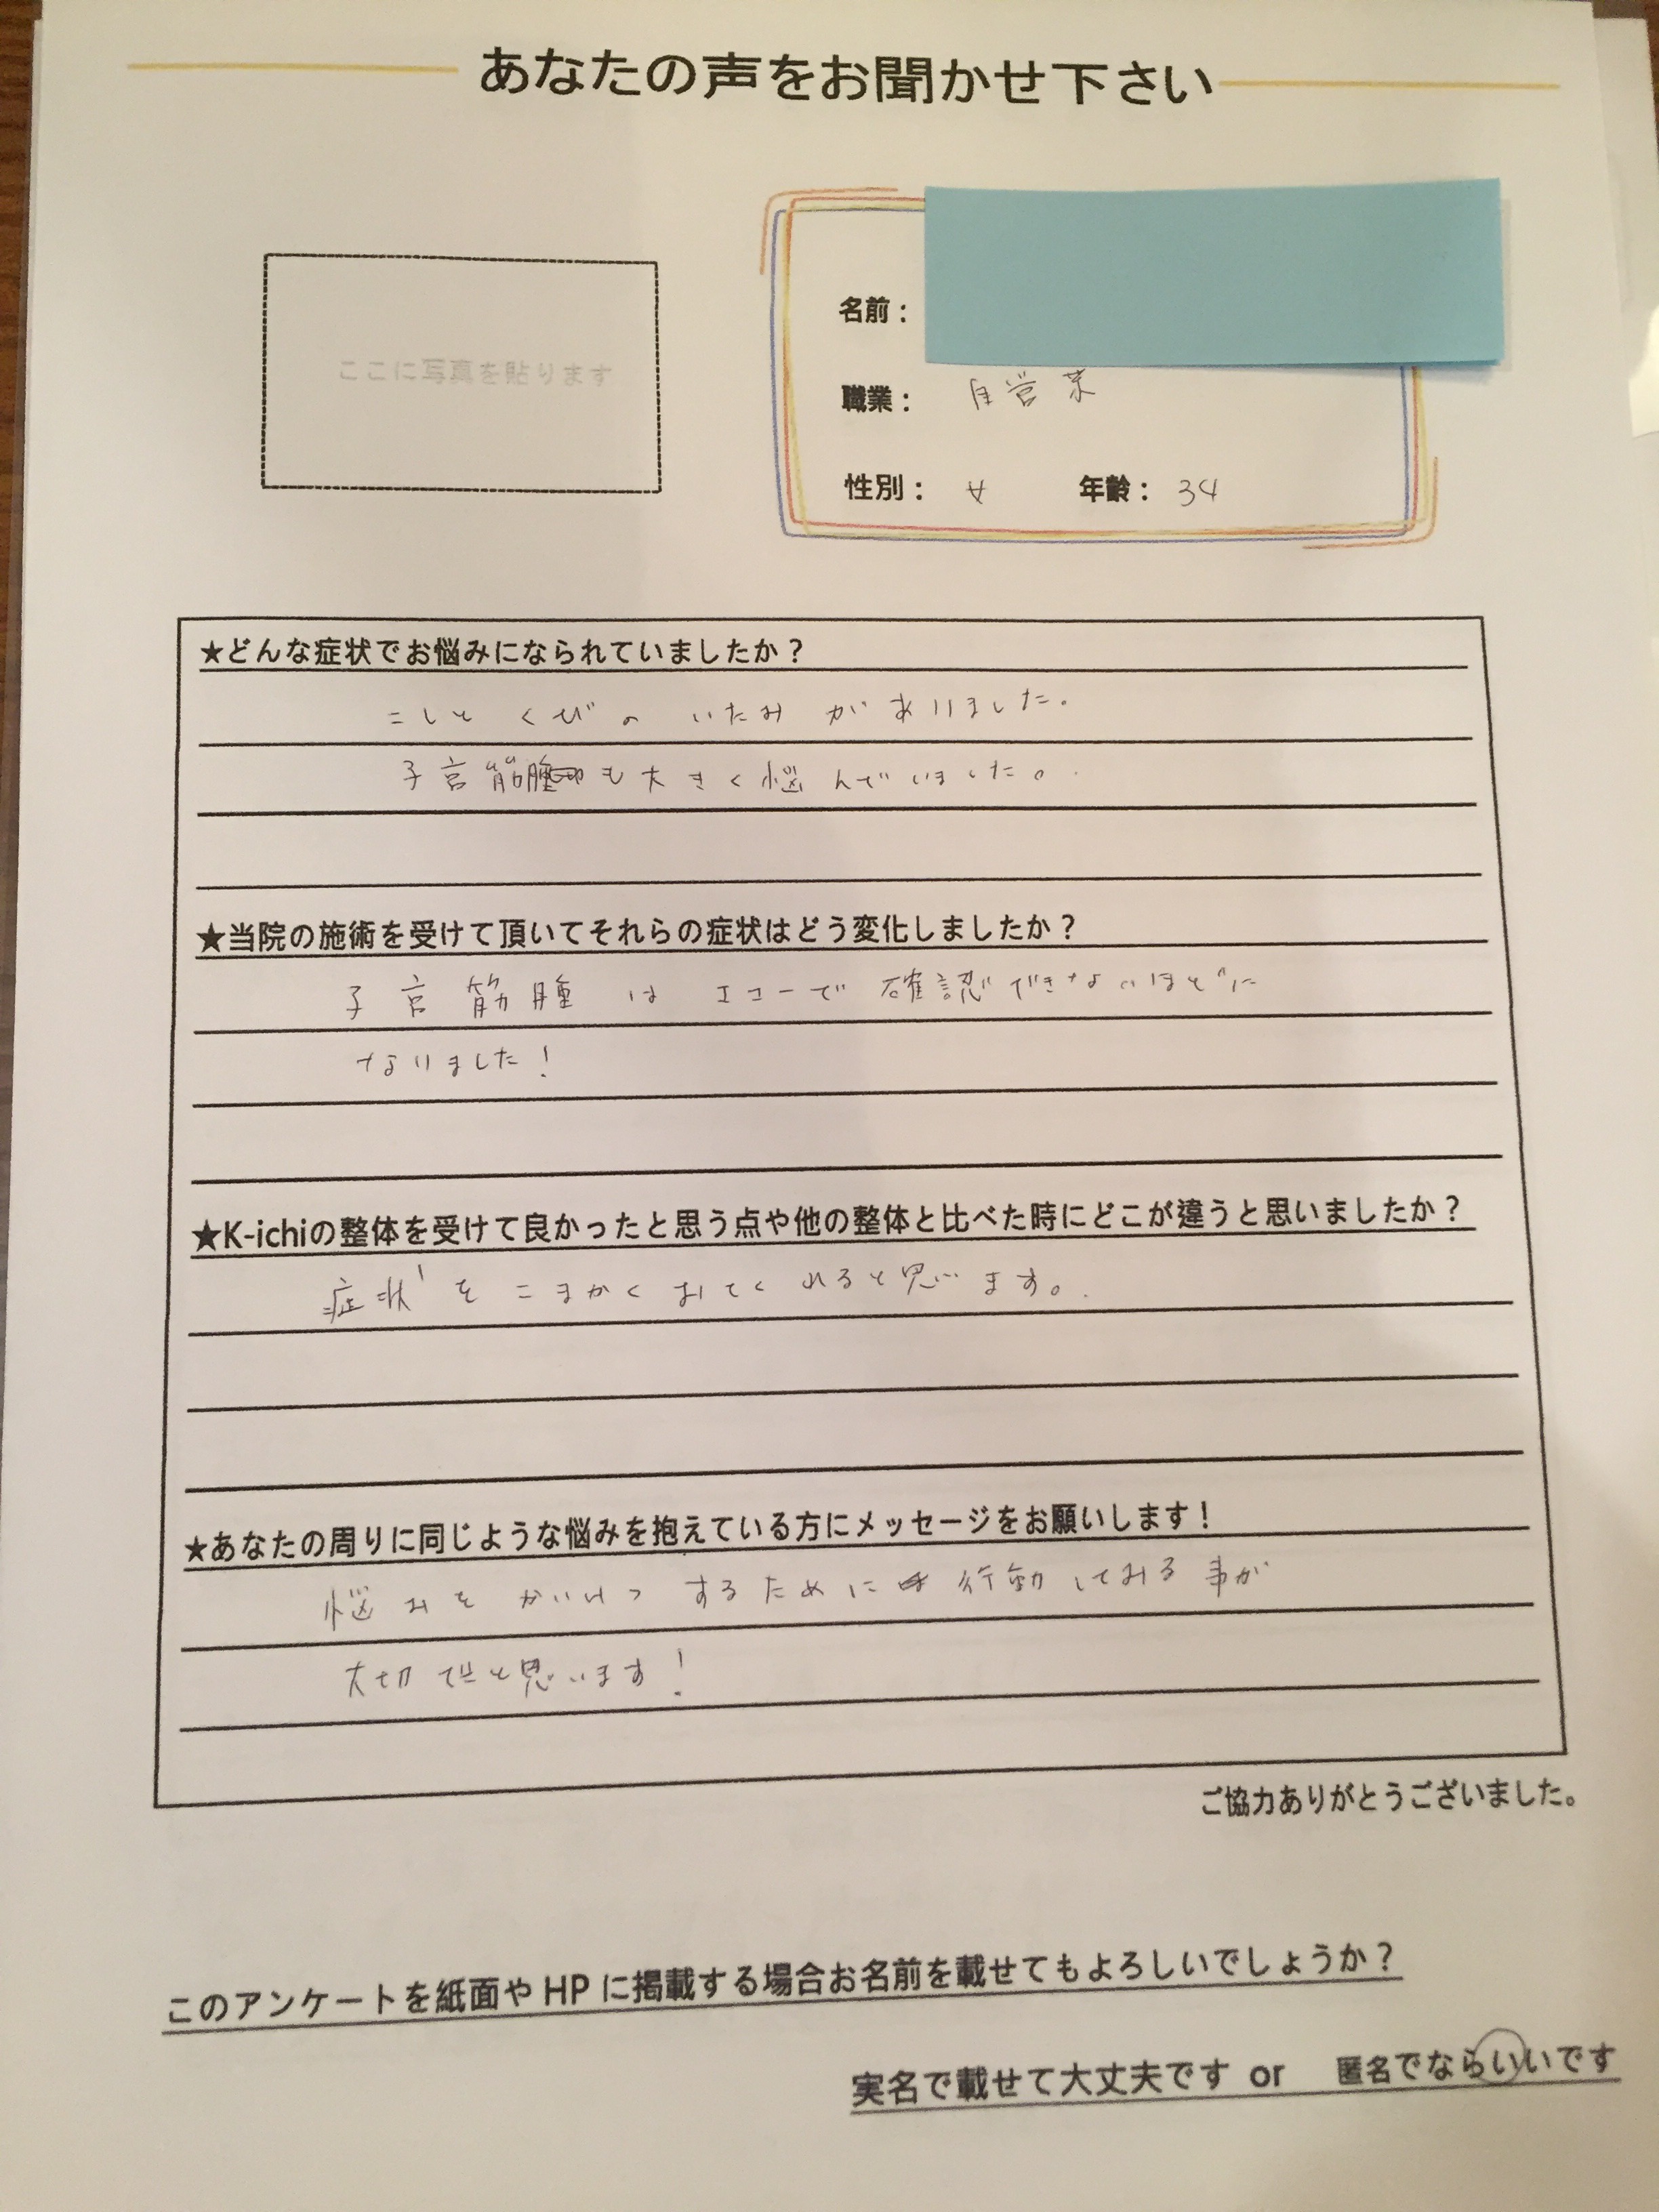 あなたの声をお聞かせ下さい
ここに写真を貼ります
名前：
職業： 自営業
性別： 女 年齢： 34
★どんな症状でお悩みになられていましたか？
こしとくびの いたみがありました。
子宮筋腫も大きく悩んでいました。
★当院の施術を受けて頂いてそれらの症状はどう変化しましたか？
子宮筋腫はエコーで確認できないほどに
なりました！
★K-ichiの整体を受けて良かったと思う点や他の整体と比べた時にどこが違うと思いましたか？
症状をこまかくみてくれると思います。
★あなたの周りに同じような悩みを抱えている方にメッセージをお願いします！
悩みをかいけつするために行動してみる事が
大切だと思います！
ご協力ありがとうございました。
このアンケートを紙面やHPに掲載する場合お名前を載せてもよろしいでしょうか？
実名で載せて大丈夫です or 匿名でならいいです